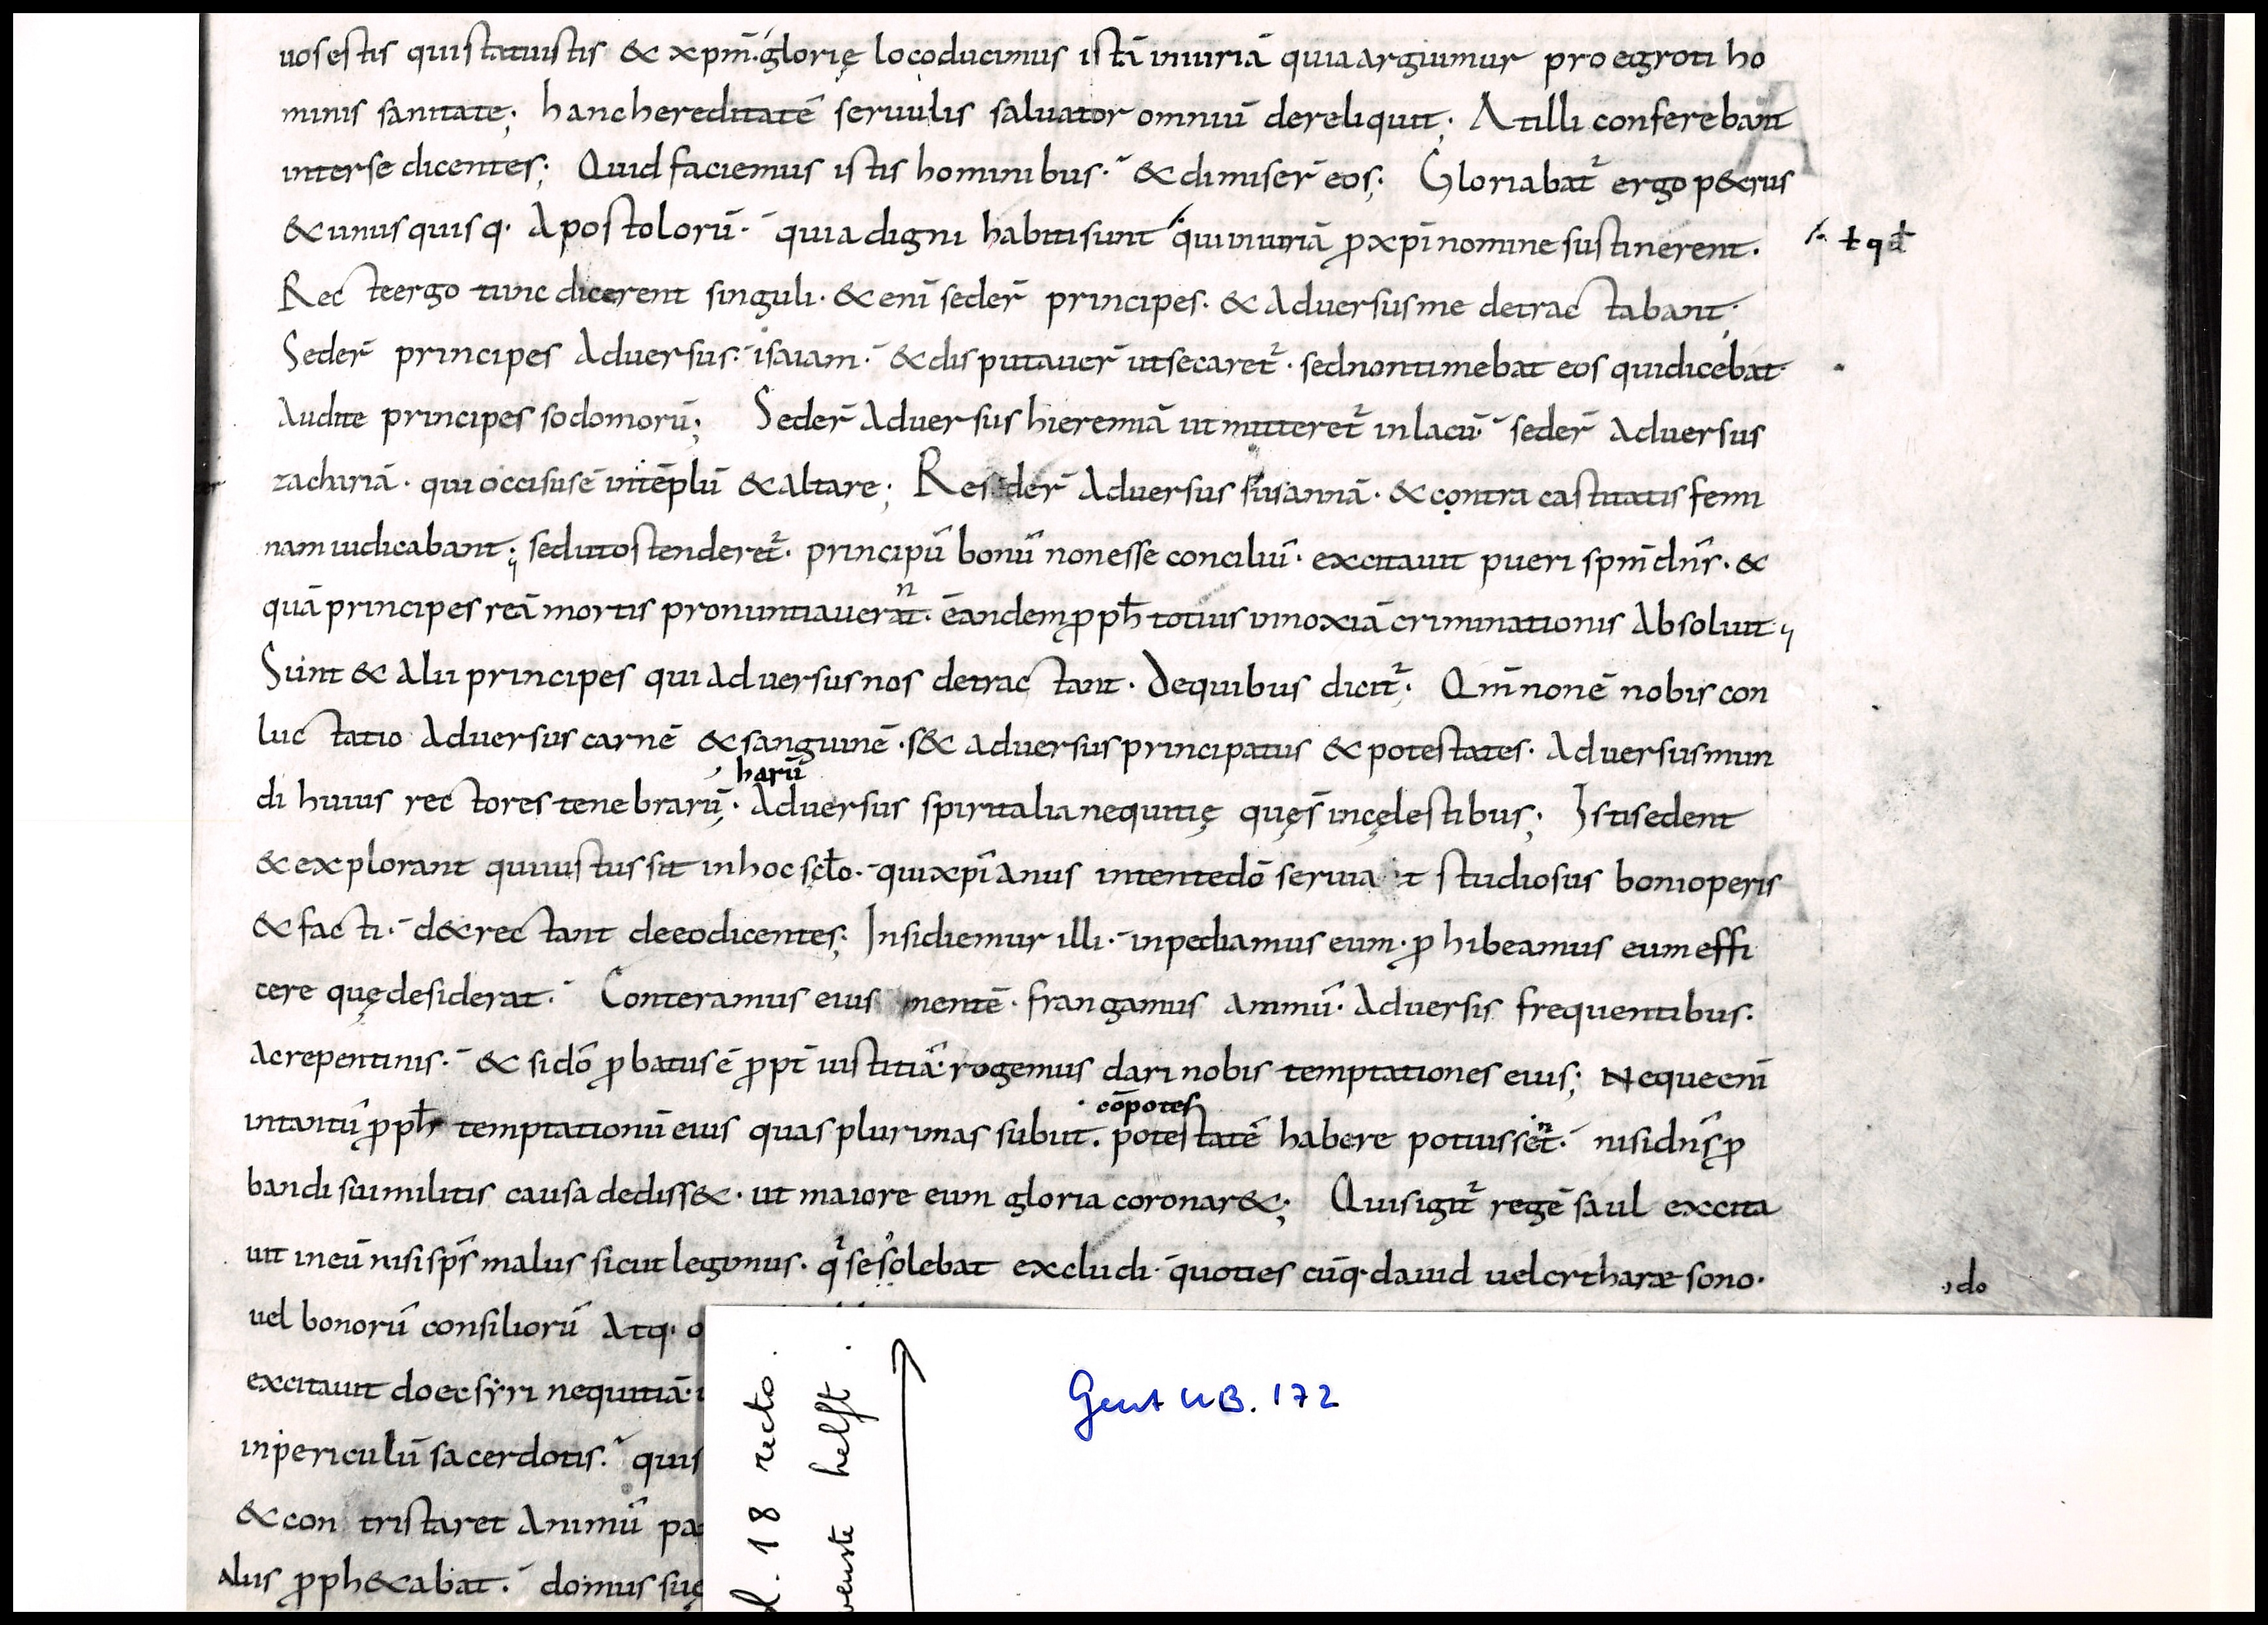 uosestis quistatuistis & xpm̄. glorię locoducimus istā iniuriā quiaarguimur pro egroti ho
minis sanitate; hanchereditatē seruulis saluator omniū dereliquit; At illi conferebant
interse dicentes; Quid faciemus istis hominibus. & dimiser̄ eos; Gloriabat᷑ ergo p&rus
& unusquisq. Apostolorū. quia digni habiti sunt qui iniuriā ꝓ xpī nomine sustinerent.
ł qđ
Recte ergo tunc dicerent singuli. & enī seder̄ principes. & aduersus me detractabant.
Seder̄ principes aduersus. isaiam. & disputauer̄ ut secaret᷑. sed non timebat eos qui dicebat
Audite principes sodomorū; Seder̄ aduersus hieremiā ut mitteret᷑ in lacū. seder̄ aduersus
zachariā. qui occisus ē int̄ tēplū & altare; Reseder̄ aduersus susannā. & contra castitatis femi
nam iudicabant; sed ut ostenderet᷑. principū bonū non esse conciliū. excitauit pueri spm̄ dns̄. &
n
quā principes reā mortis pronuntiauerat. eandem ꝓph̄ totius innoxiā criminationis absoluit;
Sunt & alii principes qui aduersus nos detractant. De quibus dicit᷑. Qm̄ non ē nobis con
luctatio aduersus carnē & sanguinē. s& aduersus principatus & potestates. aduersus mun
harū
di huius rectores tenebrarū. Aduersus spiritalia nequitię quę s̄ in cęlestibus; Isti sedent
& explorant qui iustus sit in hoc scło. qui xpīanus intente dō seruiat studiosus boni operis
& facti. d&rectant de eo dicentes; Insidiemur illi. inpediamus eum. ꝓhibeamus eum effi
cere quę desiderat. Conteramus eius mentē. frangamus animū. Aduersis frequentibus.
ac repentinis. & si dō ꝓbatus ē ꝓpt̄ iustitiā. rogemus dari nobis temptationes eius; Neque enī
cōpotes
intantū ꝓph̄ temptationū eius quas plurimas subiit. potestatē habere potuisset. nisi dns̄ ꝓ
n
bandi sui militis causa dediss&. ut maiore eum gloria coronar&; Quis igit᷑ regē saul excita
uit in eū nisi sps̄ malus sicut legimus. q᷑ se solebat excludi. quoties cūq. dauid uel citharæ sono.
do
uel bonorū consiliorū atq. o
excitauit doec syri nequitiā.
in periculū sacerdotis. quis
& contristaret animū pa
alius ꝓph&abat. domus suę
18 recto.
helft.
Gent UB. 172